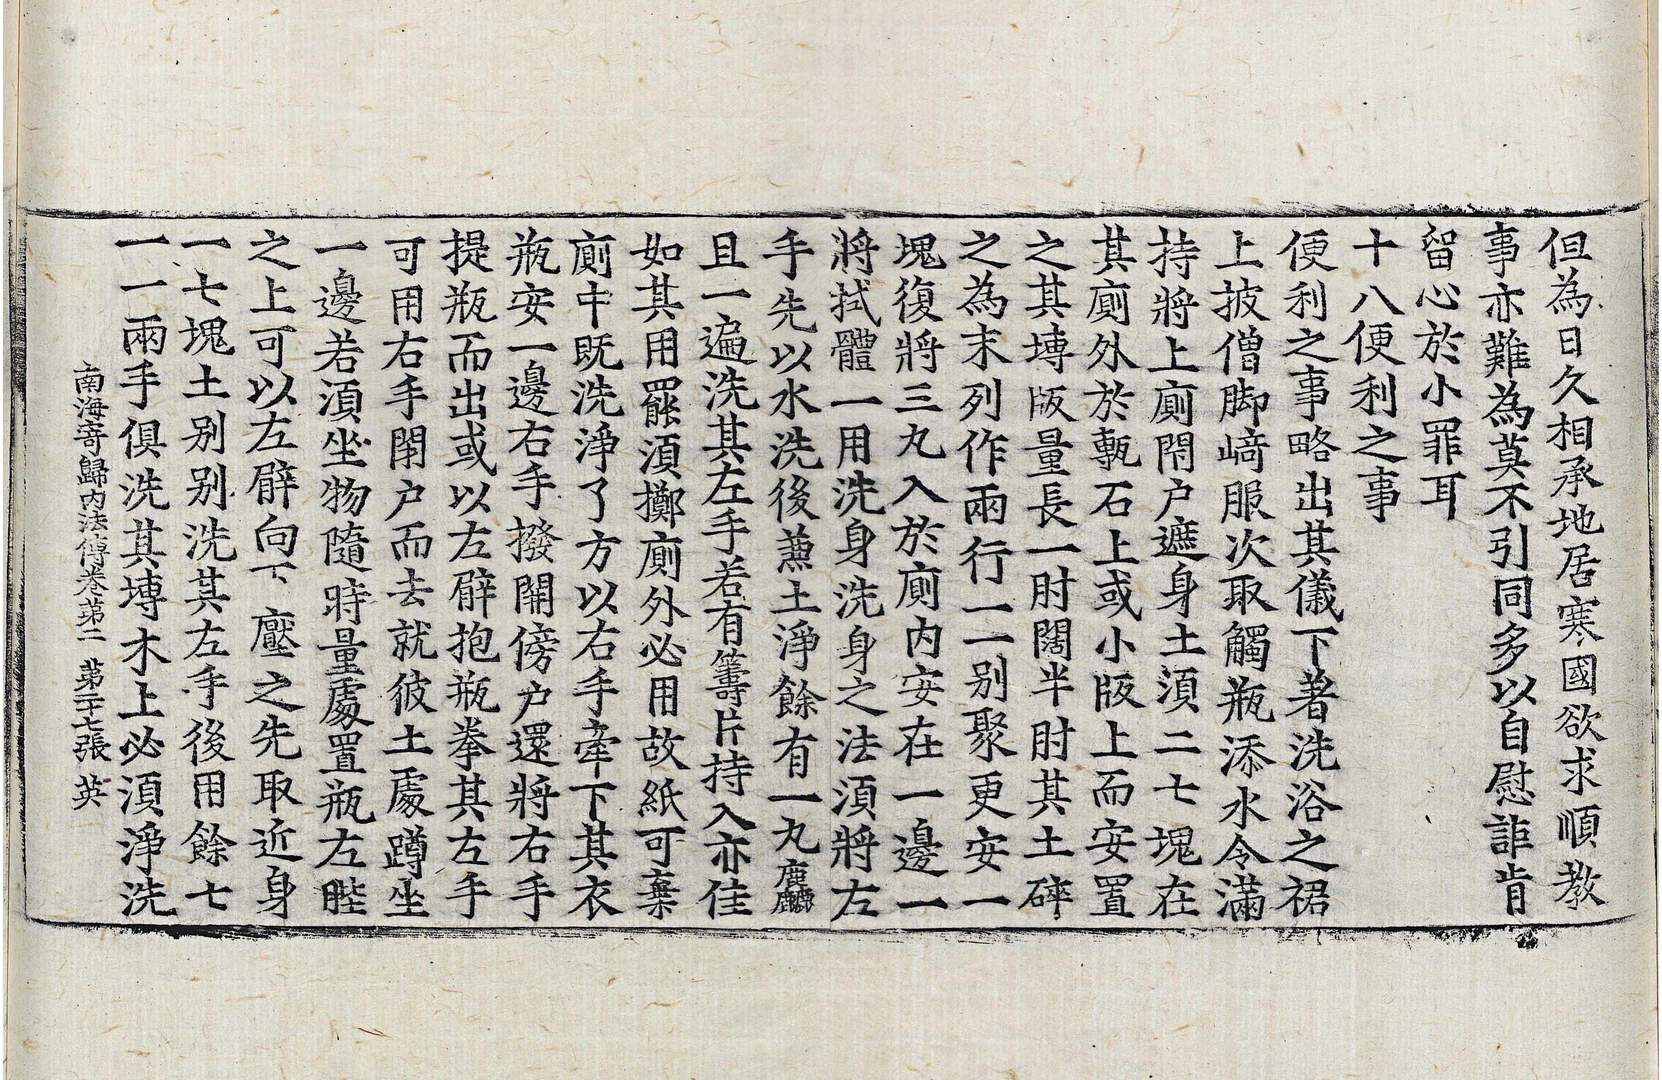 但為日久相承地居寒國欲求順教
事亦難為莫不引同多以自慰詎肯
留心於小罪耳
十八便利之事
便利之事略出其儀下著洗浴之裙
上披僧脚崎服次取觸瓶添水令滿
持將上廁閇户遮身土須二七塊在
其廁外於甎石上或小版上而安置
之其塼版量長一肘闊半肘其土碎
之為末列作兩行一一別聚更安一
塊復將三丸入於廁內安在一邊一
將拭體一用洗身洗身之法須將左
手先以水洗後兼土淨餘有一丸麁麁
且一遍洗其左手若有籌片持入亦佳
如其用罷須擲廁外必用故紙可棄
廁中既洗淨了方以右手牽下其衣
瓶安一邊右手撥開傍户還將右手
提瓶而出或以左臂抱瓶拳其左手
可用右手閇户而去就彼土處蹲坐
一邊若須坐物隨時量處置瓶左䏶
之上可以左臂向下壓之先取近身
一七塊土別別洗其左手後用餘七
一一兩手俱洗其塼木上必須淨洗
南海寄歸內法傳卷第二 第二十七張 英